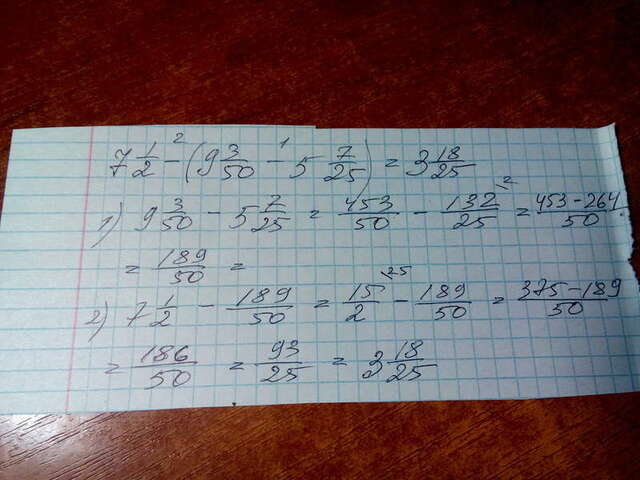 7 1/2 - (9 3/50 - 5 7/25) = 3 18/25
1) 9 3/50 - 5 7/25 = 453/50 - 132/25 = 453-264/50
= 189/50 =
2) 7 1/2 - 189/50 = 15/2 - 189/50 = 375-189/50
= 186/50 = 93/25 = 3 18/25